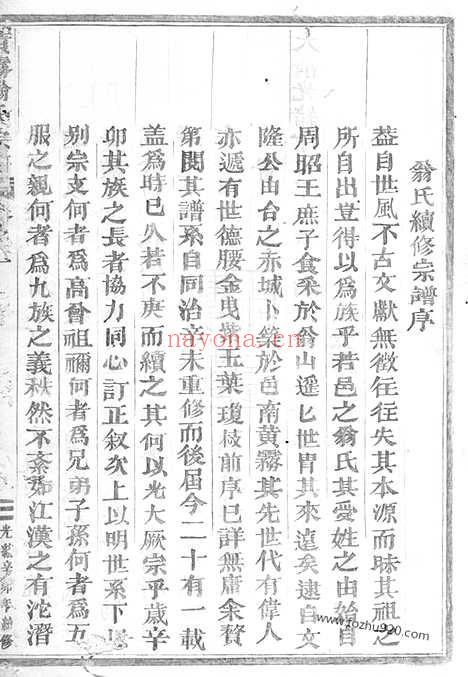 翁氏續修宗譜序
葢自世風不古文獻無徵往往失其本源而昧其祖之
所自出豈得以為族乎若邑之翁氏其受姓之由始自
周昭王庶子食采於翁山遥遥世胄其來遠矣逮自文
隆公由台之赤城卜築於邑南黃霧其先世代有偉人
亦遞有世德腰金曳紫玉葉瓊枝前序已詳無庸余贅
第閱其譜系自同治辛未重修而後屆今二十有一載
葢為時已久若不賡而續之其何以光大厥宗乎歲辛
卯其族之長者協力同心訂正敘次上以明世系下以
别宗支何者為高曾祖禰何者為兄弟子孫何者為五
服之親何者為九族之義秩然不紊如江漢之有沱潛
光緒辛卯年續修
nayona.cn
www.fozhu920.com